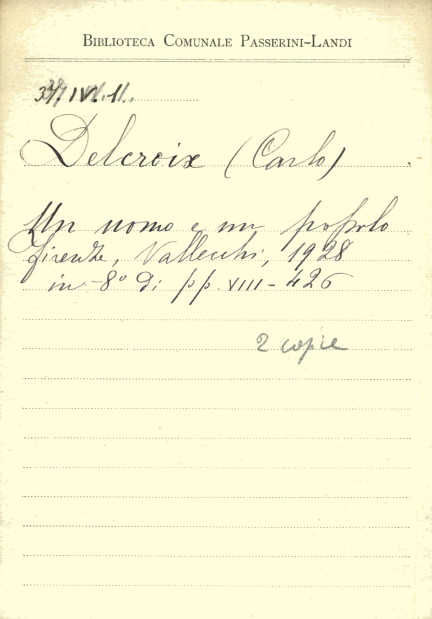 BIBLIOTECA COMUNALE PASSERINI-LANDI
IV. 11.
Delcroix (Carlo)
Un uomo e un popolo
Firenze, Vallecchi, 1928
in-8° di pp. VIII-426
2 copie